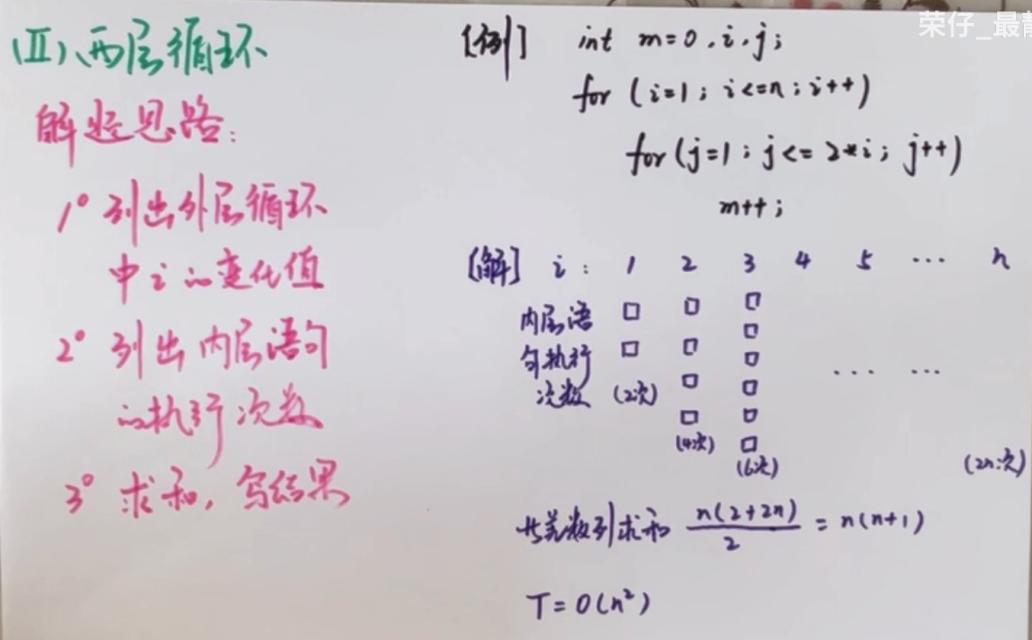 荣仔_最
(Ⅱ)、两层循环
解题思路:
1° 列出外层循环
中 i 的变化值
2° 列出内层语句
的执行次数
3° 求和，写结果
[例] int m=0,i,j;
for (i=1; i<=n; i++)
for (j=1; j<=2*i; j++)
m++;
[解] i: 1 2 3 4 5 … n
内层语
句执行
次数 (2次) (4次) (6次) … … (2n次)
等差数列求和 n(2+2n)/2 = n(n+1)
T=O(n²)